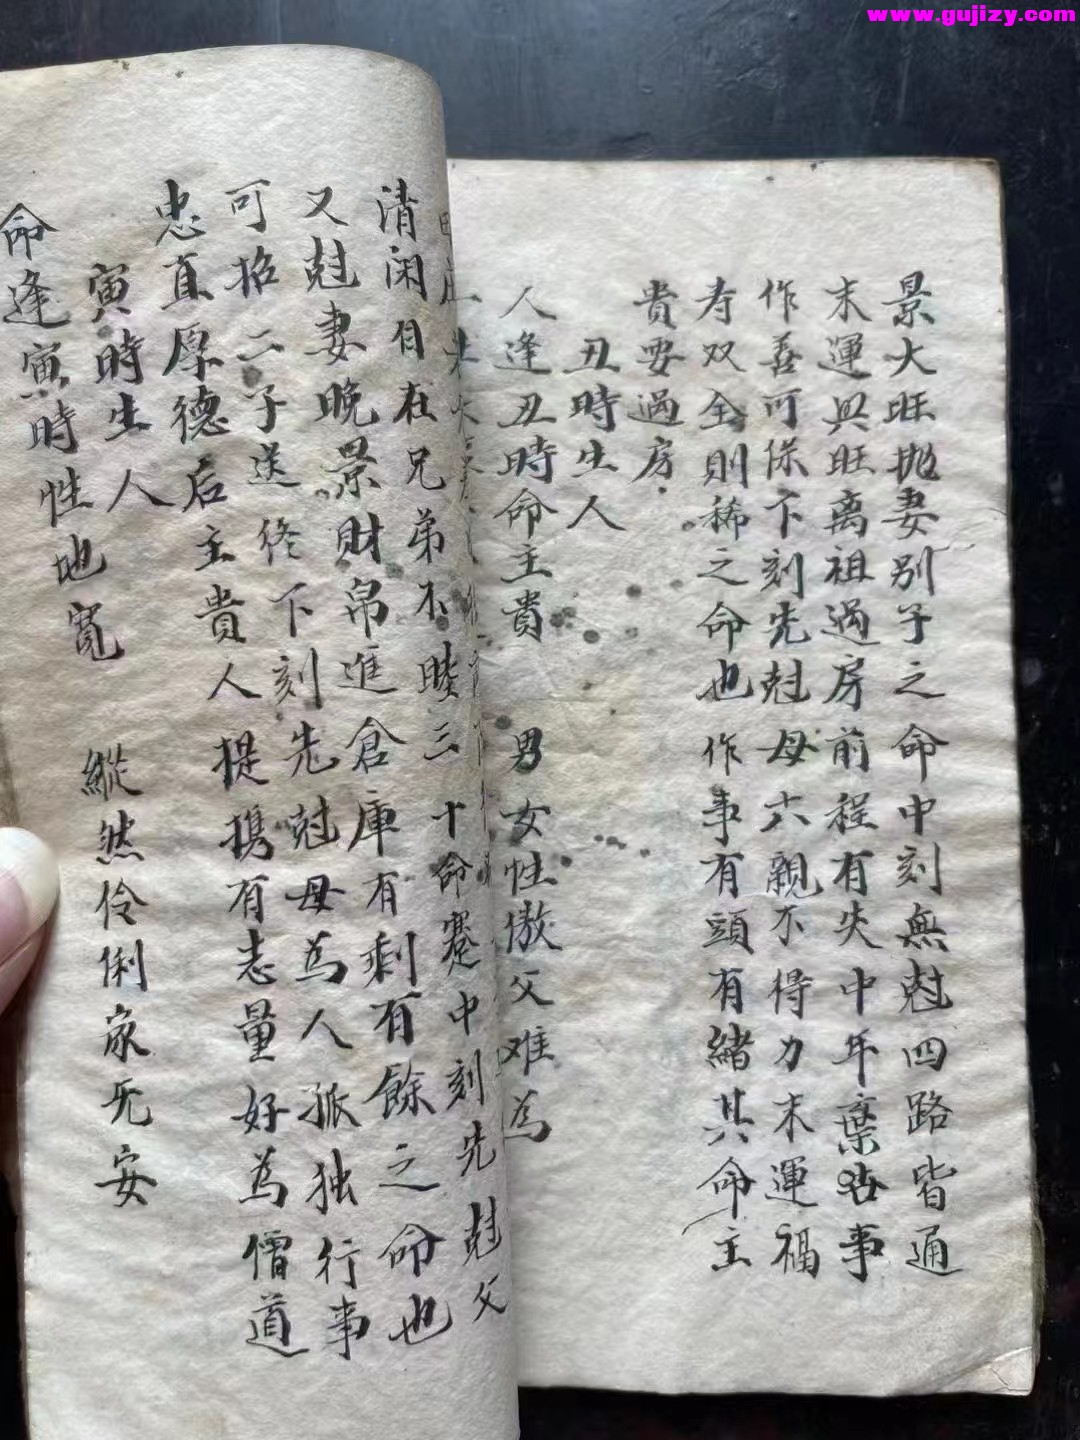 www.gujizy.com
景大旺抛妻别子之命中刻無尅四路皆通
末運興旺离祖過房前程有失中年葉沾事
作善可保下刻先尅母六親不得力末運福
寿双全則稀之命也作事有頭有緒其命主
貴要過房
丑時生人
人逢丑時命主貴 男女性傲父难為
清闲自在兄弟不睦三十命蹇中刻先尅父
又尅妻晚景財帛進倉庫有剩有餘之命也
可招二子送終下刻先尅母為人孤独行事
忠直厚德后主貴人提携有志量好為僧道
寅時生人
命逢寅時性地寬 縱然伶俐家无安